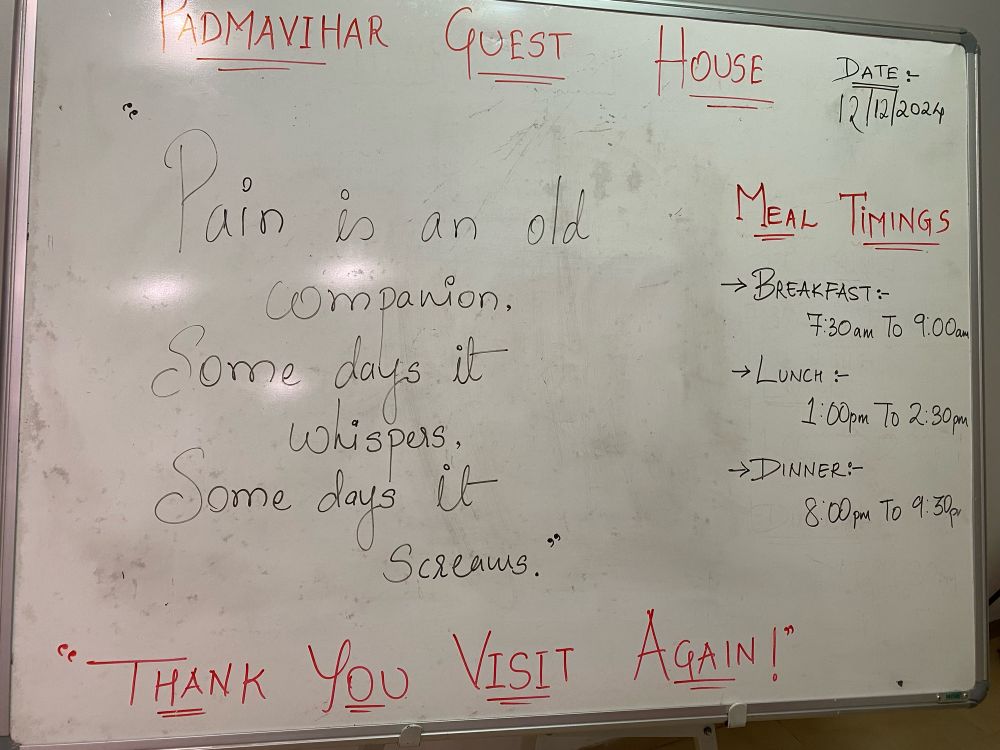 PADMAVIHAR GUEST HOUSE
DATE:-
12/12/2024
"Pain is an old
companion.
Some days it
whispers,
Some days it
Screams."
MEAL TIMINGS
→ BREAKFAST:-
7:30am To 9:00am
→ LUNCH:-
1:00pm To 2:30pm
→ DINNER:-
8:00pm To 9:30pm
"THANK YOU VISIT AGAIN!"